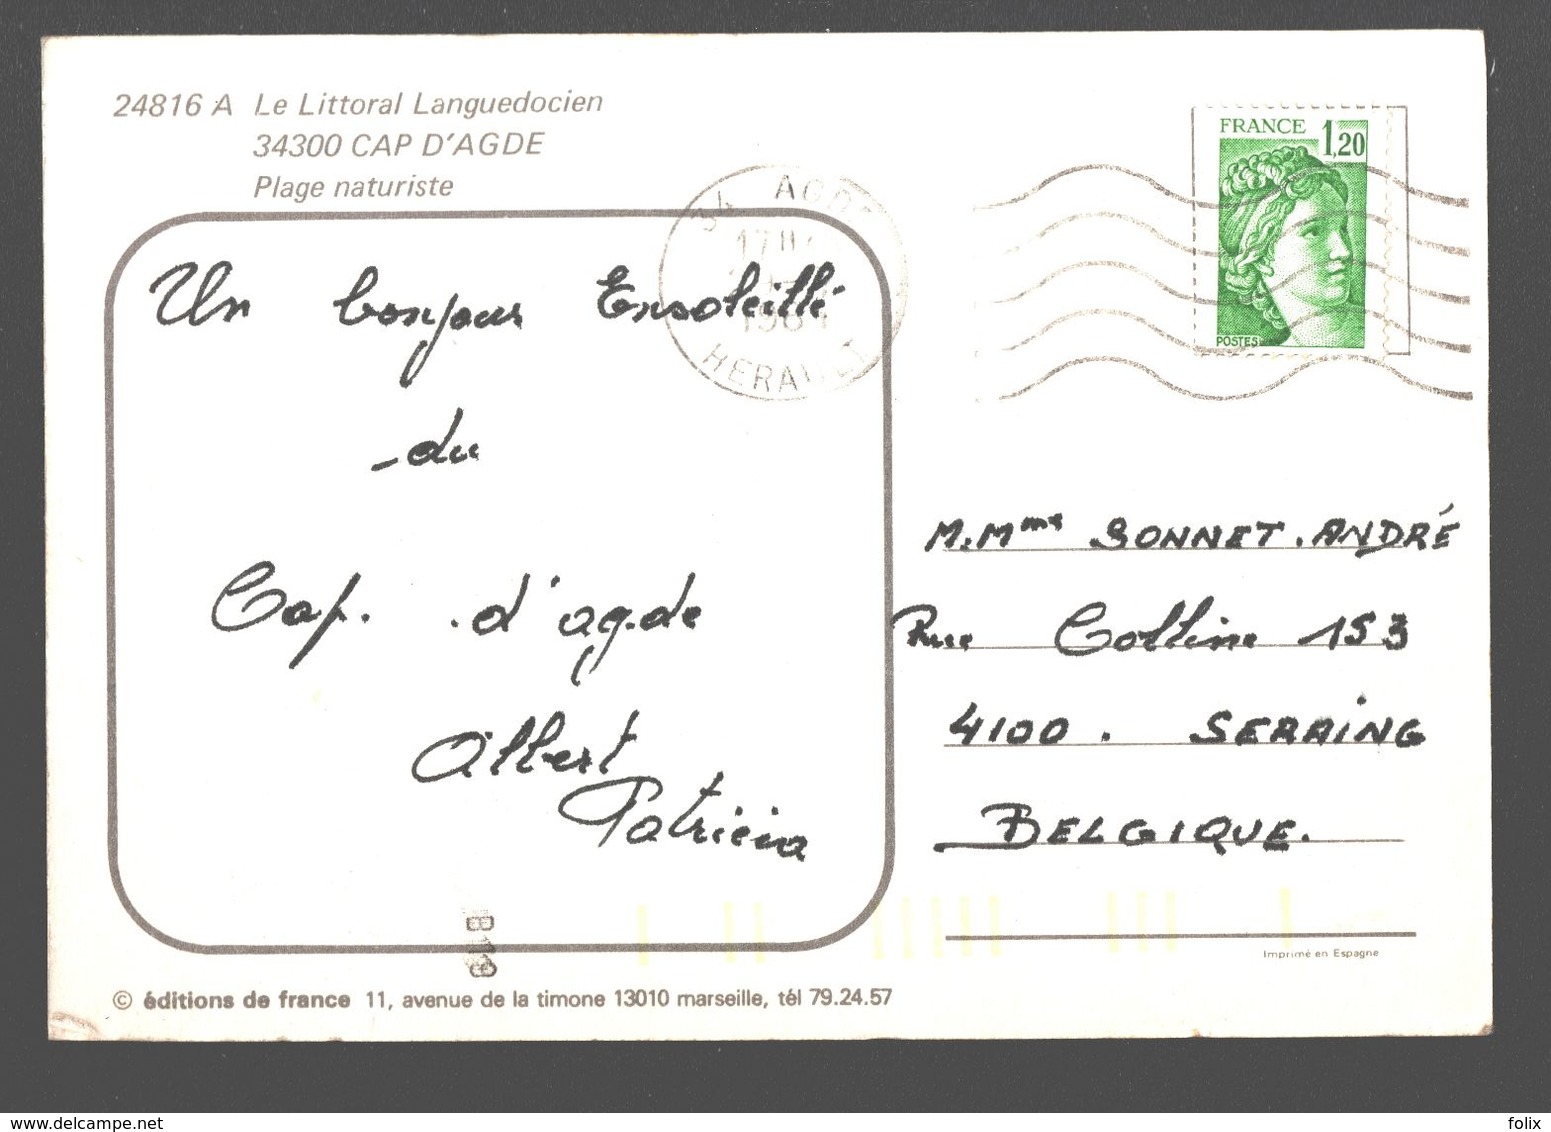 24816 A Le Littoral Languedocien
34300 CAP D'AGDE
Plage naturiste
FRANCE 1,20
POSTES
34 AGDE
17H
HERAULT
Un bonjour Ensoleillé
du
Cap. d'agde
Albert
Patricia
M.Mme SONNET.ANDRÉ
Rue Colline 153
4100. SERAING
BELGIQUE.
B119
Imprimé en Espagne
© éditions de france 11, avenue de la timone 13010 marseille, tél 79.24.57
delcampe.net
folix